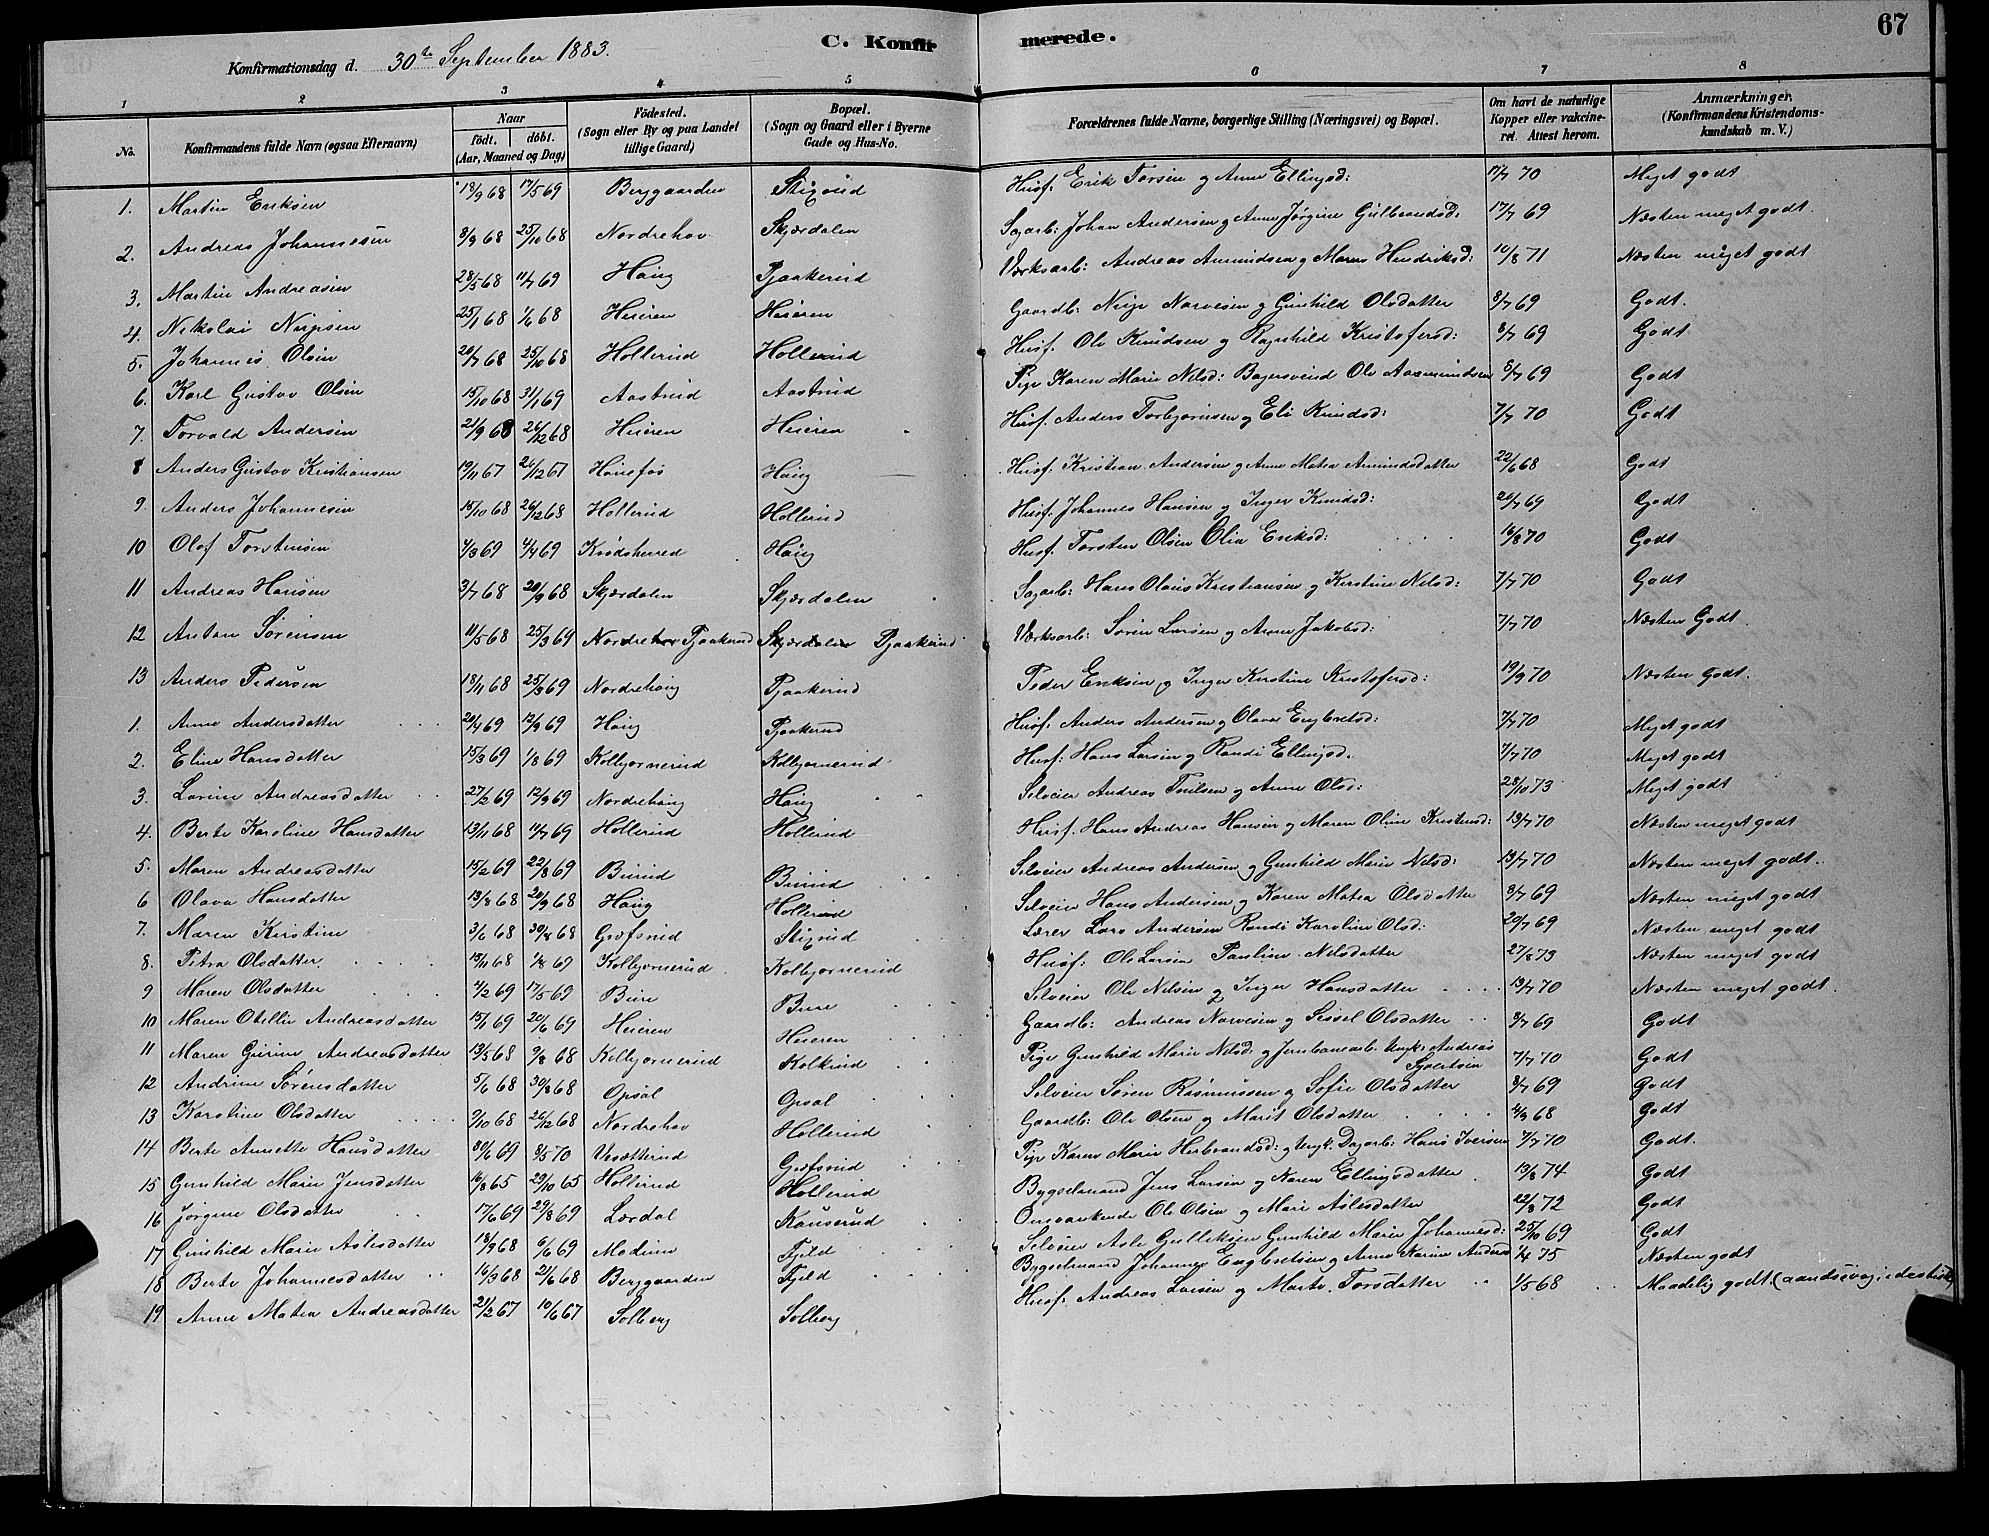 67
C. Konfirmerede.
Konfirmationsdag d. 30te September 1883.
1 2 3 4 5 6 7 8
No. Konfirmandens fulde Navn (ogsaa Efternavn) Naar födt. döbt. (Aar, Maaned og Dag) Födested. (Sogn eller By og paa Landet tillige Gaard) Bopæl. (Sogn og Gaard eller i Byerne Gade og Hus-No. Forældrenes fulde Navne, borgerlige Stilling (Næringsvei) og Bopæl. Om havt de naturlige Kopper eller vakcineret. Attest herom. Anmærkninger. (Konfirmandens Kristendomskundskab m. V.)
1. Martin Eriksen 18/9 68 17/5 69 Berggaarden Stigrud Husf. Erik Torsen og Anne Ellingsd: 11/7 70 Meget godt
2. Andreas Johannesen 8/9 68 25/10 68 Nordrehov Skjærdalen Sagarb: Johan Andersen og Anne Jørgine Gulbrandsd: 17/7 69 Næsten meget godt.
3. Martin Andreasen 28/5 68 11/7 69 Haug Pjaakerud Værksarb: Andreas Amundsen og Maren Hendriksd: 10/8 71 Næsten meget godt
4. Nikolai Nirpsen 25/1 68 1/6 68 Heieren Heieren Gaardb: Nirp Narvesen og Gunhild Olsdatter 8/7 69 Godt.
5. Johannes Olsen 20/7 68 25/10 68 Hollerud Hollerud Husf. Ole Knudsen og Ragnhild Kristofersd: 8/7 69 Godt
6. Karl Gustav Olsen 15/10 68 31/1 69 Aastrud Aastrud Pige Karen Marie Nilsd: Bagersvend Ole Aasmundsen 8/7 69 Godt
7. Torvald Andersen 21/9 68 26/12 68 Heieren Heieren Husf. Anders Torbjørnsen og Eli Knudsd: 7/7 70 Godt
8 Anders Gustav Kristiansen 19/11 67 26/12 67 Hønefos Haug Husf. Kristian Andersen og Anne Matea Amundsdatter 22/6 68 Godt
9. Anders Johannesen 15/10 68 26/12 68 Hollerud Hollerud Husf. Johannes Hansen og Inger Knudsd: 20/7 69 Godt
10 Olof Torstensen 4/3 69 4/4 69 Krødsherred Haug Husf. Torsten Olsen Olia Eriksd: 16/8 70 Godt
11 Andreas Hansen 3/7 68 20/9 68 Skjærdalen Skjærdalen Sagarb: Hans Olaus Kristiansen og Kerstine Nilsd: 7/7 70 Godt
12 Anton Sørensen 11/5 68 25/3 69 Nordrehov Pjaakerud Skjærdalen Pjaakerud Værksarb: Søren Larsen og Anne Jakobsd: 7/7 70 Næsten Godt.
13 Anders Pedersen 18/11 68 25/3 69 Nordrehaug Pjaakerud Peder Eriksen og Inger Kirstine Kristofersd: 19/9 70 Næsten Godt.
1. Anne Andersdatter 20/4 69 12/9 69 Haug Pjaakerud Husf. Anders Andersen og Olava Engbretsd: 7/7 70 Meget godt
2. Eline Hansdatter 15/3 69 1/8 69 Kolbjørnerud Kolbjørnerud Husf: Hans Larsen og Randi Ellingsd. 7/7 70 Meget godt
3. Lovine Andreasdatter 27/2 69 12/9 69 Nordrehaug Haug Selveier Andreas Paulsen og Anne Olsd: 28/10 73 Meget godt
4. Berte Karoline Hansdatter 13/11 68 11/7 69 Hollerud Hollerud Husf. Hans Andreas Hansen og Maren Oline Kristensd: 13/7 70 Næsten meget godt
5. Maren Andreasdatter 15/2 69 22/8 69 Burud Burud Selveier Andreas Andersen og Gunhild Marie Nilsd: 13/7 70 Næsten meget godt.
6 Olava Hansdatter 13/8 68 20/9 68 Haug Hollerud Selveier Hans Andersen og Karen Matea Olsdatter 8/7 69 Næsten meget godt
7. Maren Kirstine 3/6 68 30/8 68 Græfsrud Stigrud Lærer Lars Andersen Randi Karoline Olsd: 20/7 69 Næsten meget godt
8. Petra Olsdatter 15/11 68 1/8 69 Kolbjørnerud Kolbjørnerud Husf: Ole Larsen Pauline Nilsdatter 27/8 73 Næsten meget godt
9 Maren Olsdatter 7/2 69 17/5 69 Bure Bure Selveier Ole Nilsen og Inger Hansdatter 13/7 70 Næsten meget godt.
10 Maren Otellie Andreasdatter 15/1 69 20/6 69 Heieren Heieren Gaardb: Andreas Narvesen og Sissel Olsdatter 8/7 69 Godt
11 Maren Gurine Andreasdatter 13/5 68 9/8 68 Kolbjørnerud Kolkrud Pige Gunhild Marie Nilsd: og Jernbanearb. Ungk: Andreas Syvertsen 7/7 70 Godt
12 Andrine Sørensdatter 5/6 68 30/8 68 Opsal Opsal Selveier Søren Rasmussen og Sofie Olsdatter 8/7 69 Godt
13 Karoline Olsdatter 7/10 68 26/12 68 Nordrehov Hollerud Gaardb: Ole Olsen og Marit Olsdatter 2/9 68 Godt
14 Berte Annette Hansdatter 30/6 69 8/5 70 Vesætterud Græfsrud Pige Karen Marie Herbrandsd: og Ungk. Dagarb: Hans Iversen 7/7 70 Godt.
15 Gunhild Marie Jensdatter 16/8 65 29/10 65 Hollerud Hollerud Bygselmand Jens Larsen og Karen Ellingsdatter 13/8 74 Godt
16 Jørgine Olsdatter 17/6 69 29/8 69 Lærdal Kauserud Omvankende Ole Olsen og Mari Aslesdatter 22/8 72 Godt
17 Gunhild Marie Aslesdatter 18/9 68 6/6 69 Modum Fjeld Selveier Asle Gulleksen Gunhild Marie Johannesd: 25/10 69 Godt
18 Berte Johannesdatter 16/3 68 21/6 68 Berggaarden Fjeld Bygselmand Johannes Engbretsen og Anne Karine Andersd 1/4 75 Næsten godt
19 Anne Matea Andreasdatter 21/2 67 10/6 67 Solberg Solberg Husf. Andreas Larsen og Marte Torsdatter 1/5 68 Maadelig godt